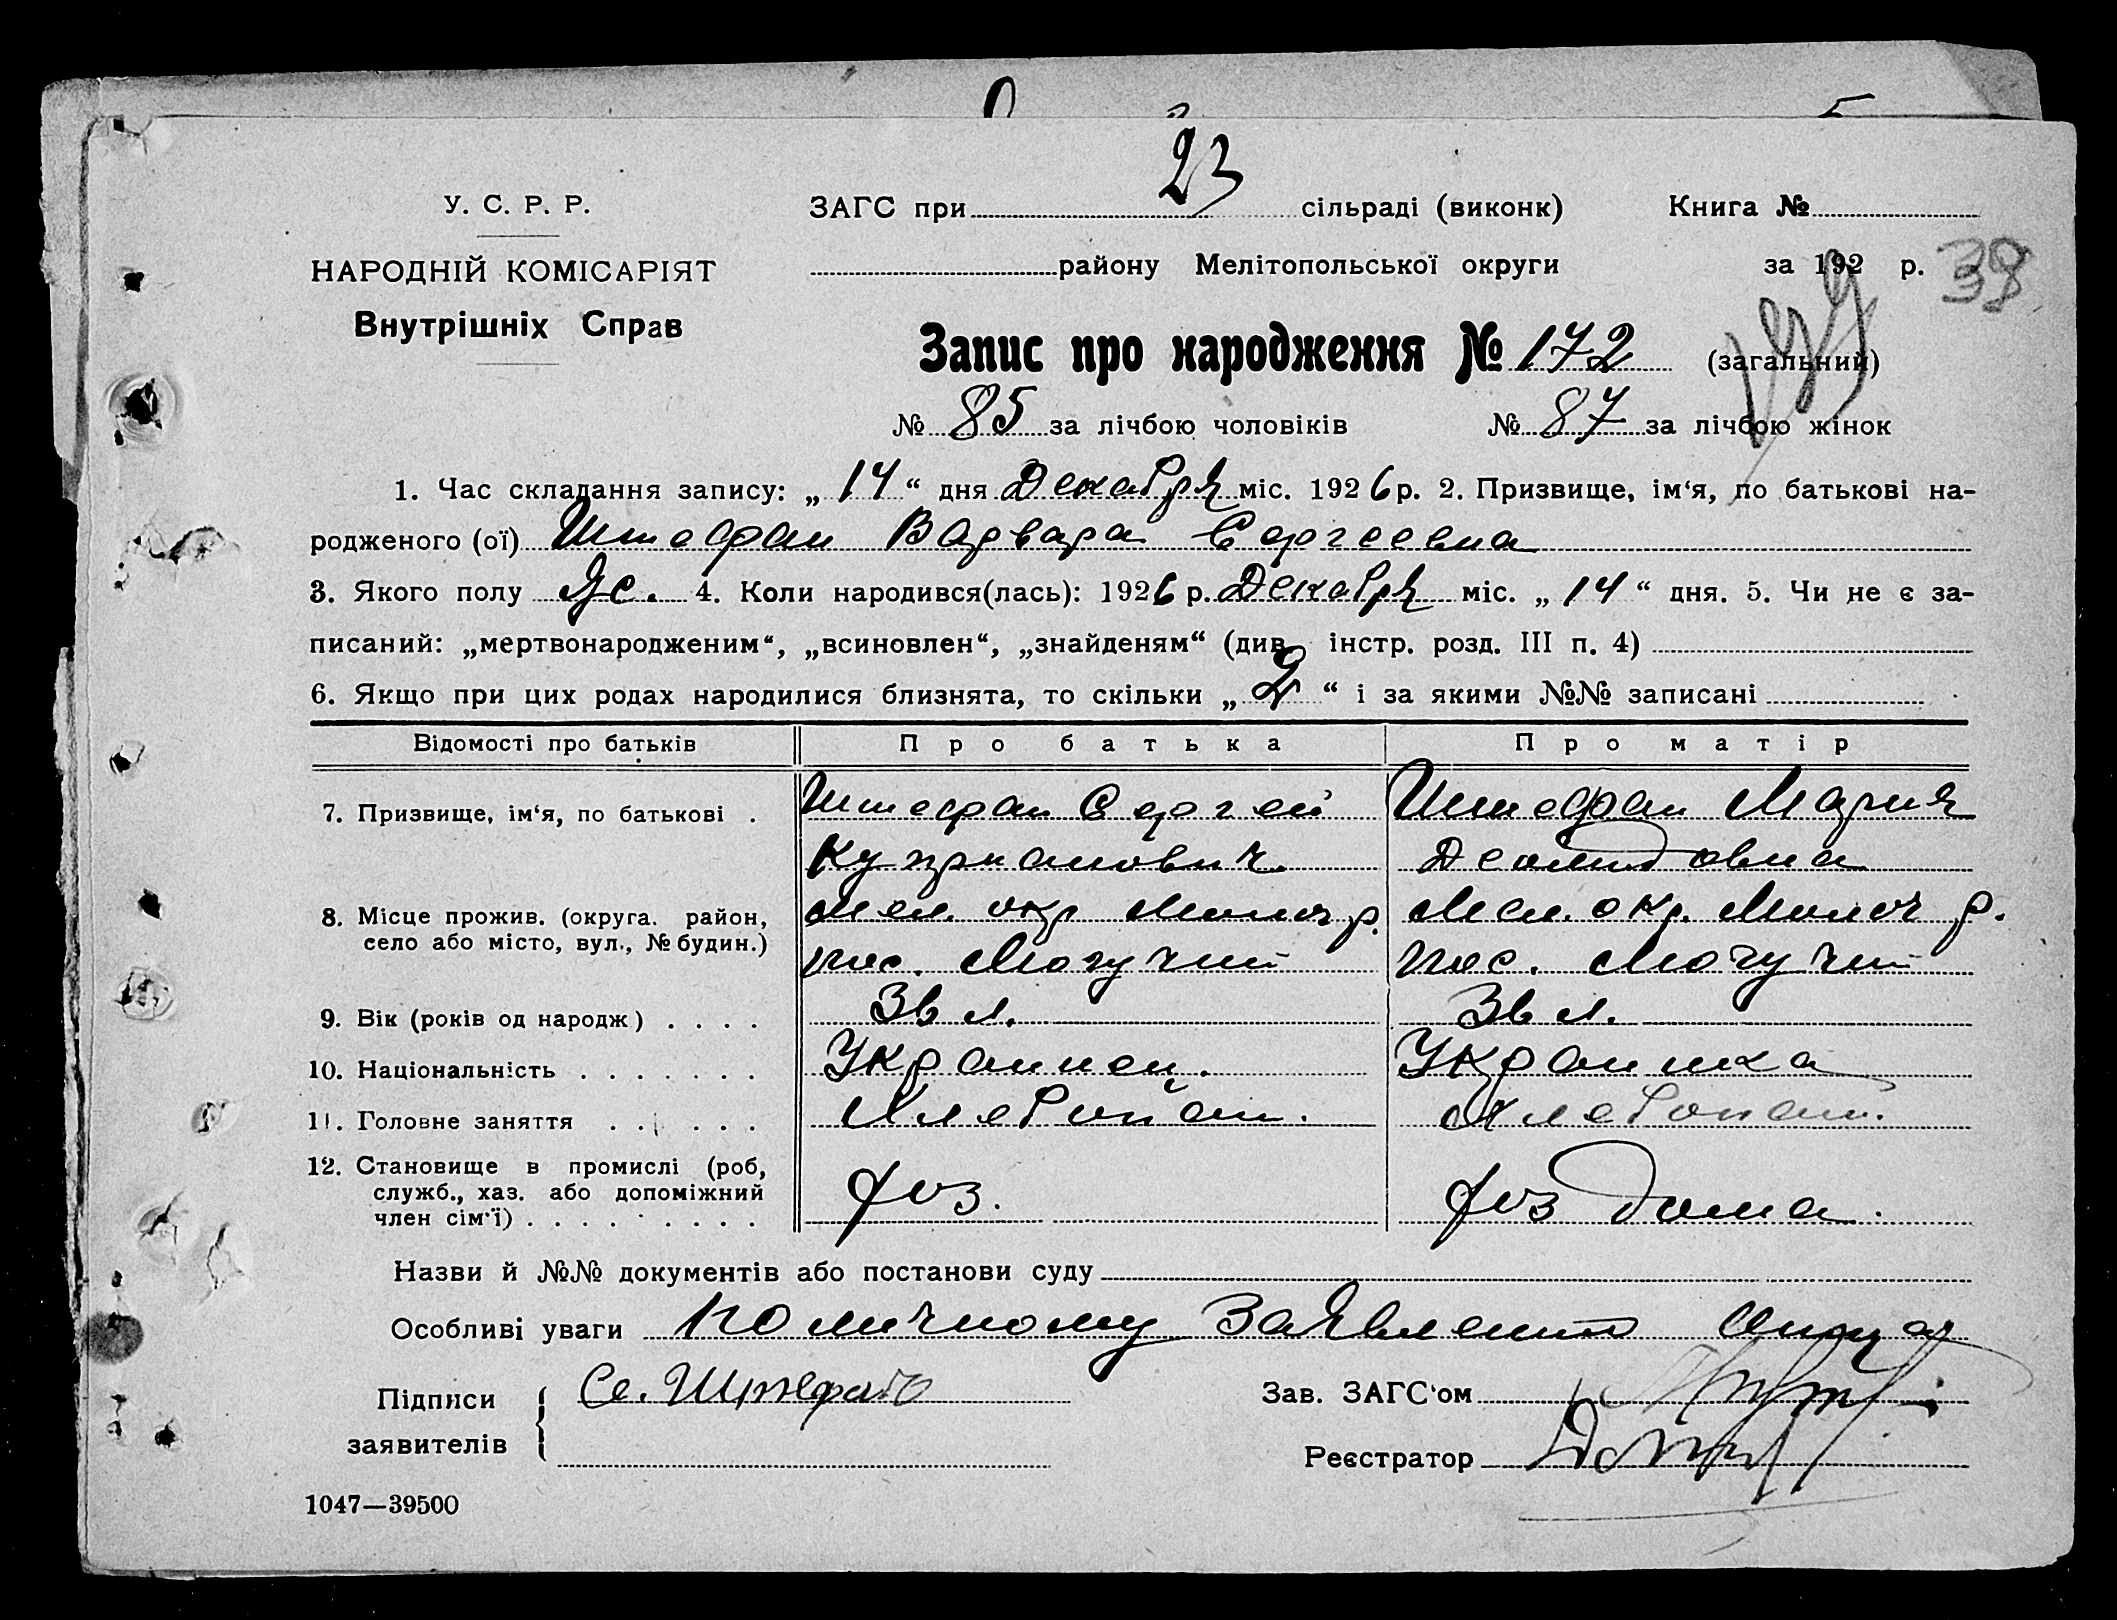 23
У. С. Р. Р. ЗАГС при сільраді (виконк) Книга №
НАРОДНІЙ КОМІСАРІЯТ району Мелітопольської округи за 192 р. 39
Внутрішніх Справ
Запис про народження № 172 (загальний)
№ 85 за лічбою чоловіків № 87 за лічбою жінок
1. Час складання запису: „ 14 “ дня Декабря міс. 1926 р. 2. Призвище, ім‘я, по батькові на-
родженого (ої) Штефан Варвара Сергеевна
3. Якого полу ж. 4. Коли народився(лась): 1926 р. Декабря міс. „ 14 “ дня. 5. Чи не є за-
писаний: „мертвонародженим“, „всиновлен“, „знайденям“ (див. інстр. розд. III п. 4)
6. Якщо при цих родах народилися близнята, то скільки „ 2 “ і за якими №№ записані
Відомості про батьків Про батька Про матір
7. Призвище, ім‘я, по батькові . Штефан Сергей Штефан Мария
Куприанович Деомидовна
8. Місце прожив. (округа. район, Мел. окр Молоч р. Мел. окр. Молоч р.
село або місто, вул., № будин.) пос. Могучий пос. Могучий
9. Вік (років од народж) . . . . 36 л. 36 л.
10. Національність . . . . . . . Украинец. Украинка
11. Головне заняття . . . . . . Хлебопаш. Хлебопаш.
12. Становище в промислі (роб,
служб., хаз. або допоміжний хоз. хоз дома.
член сім‘ї) . . . . . . . . .
Назви й №№ документів або постанови суду
Особливі уваги по личному заявлению отца
Підписи Се. Штефан Зав. ЗАГС‘ом
заявителів Реєстратор
1047—39500